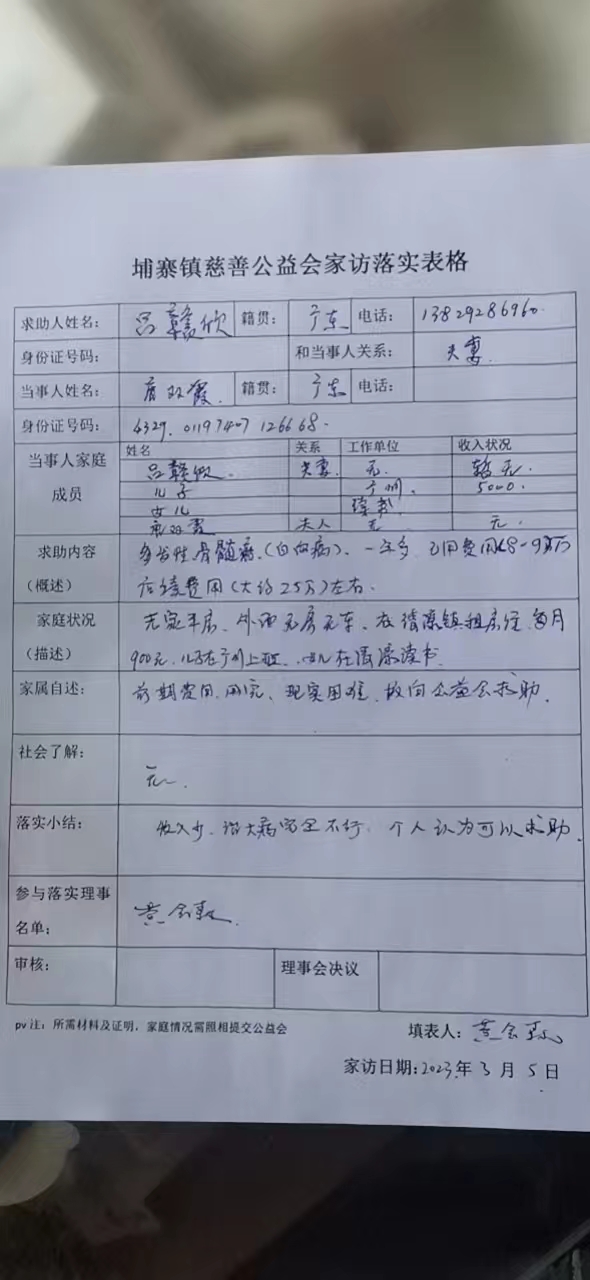 埔寨镇慈善公益会家访落实表格
求助人姓名: 吕赣欣 籍贯: 广东 电话: 13829286960
身份证号码: 和当事人关系: 夫妻.
当事人姓名: 双霞. 籍贯: 广东 电话:
身份证号码:
当事人家庭成员 姓名 关系 工作单位 收入状况
吕赣欣. 夫妻. 无. 暂无.
儿子 广州. 5000.
女儿 读书
双霞 夫人 无 无.
求助内容(概述) 多发性骨髓癌.(白血病). 一年多 已用费用 万
后续费用(大约25万)左右.
家庭状况(描述) 无家平房. 外面无房无车. 在 镇租房住 每月
900元. 儿子在广州上班. 女儿在 读书.
家属自述: 前期费用 用完、现实困难. 故向公益会求助.
社会了解: 无.
落实小结: 收入少. 大病 不行. 个人认为可以求助.
参与落实理事名单: 黄
审核: 理事会决议
pv注: 所需材料及证明,家庭情况需照相提交公益会 填表人: 黄
家访日期:2023年3月5日